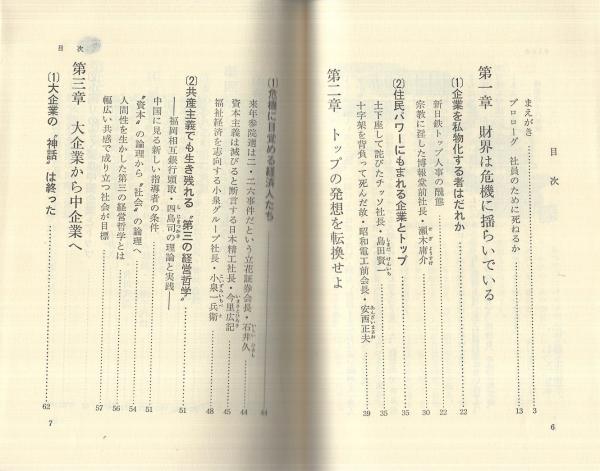 目次
まえがき 3
プロローグ 社員のために死ねるか 13
第一章 財界は危機に揺らいでいる
(1)企業を私物化する者はだれか 22
新日鉄トップ人事の醜態 22
宗教に淫した博報堂前社長・瀬木庸介 30
(2)住民パワーにもまれる企業とトップ 35
土下座して詫びたチッソ社長・島田賢一 35
十字架を背負って死んだ故・昭和電工前会長・安西正夫 39
6
第二章 トップの発想を転換せよ
(1)危機に目覚める経済人たち 44
来年参院選は二・二六事件だという立花証券会長・石井久 44
資本主義は滅びると断言する日本精工社長・今里広記 45
福祉経済を志向する小泉グループ社長・小泉一兵衛 48
(2)共産主義でも生き残れる〝第三の経営哲学〟 51
――福岡相互銀行頭取・四島司の理論と実践――
中国に見る新しい指導者の条件 51
〝資本〟の論理から〝社会〟の論理へ 54
人間性を生かした第三の経営哲学とは 56
幅広い共感で成り立つ社会が目標 57
第三章 大企業から中企業へ
(1)大企業の〝神話〟は終った 62
目次
7